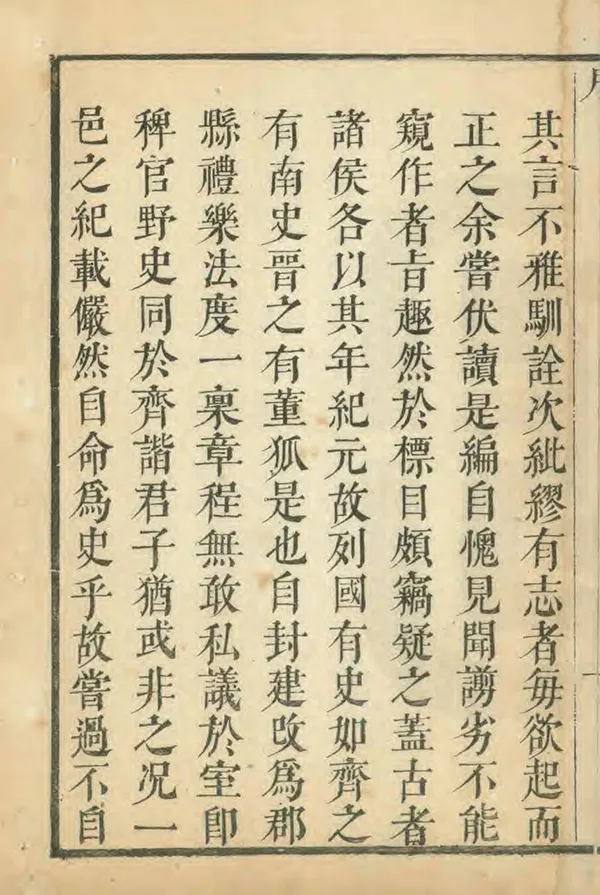 其言不雅馴詮次紕繆有志者每欲起而
正之余嘗伏讀是編自愧見聞謭劣不能
窺作者旨趣然於標目頗竊疑之蓋古者
諸侯各以其年紀元故列國有史如齊之
有南史晉之有董狐是也自封建改爲郡
縣禮樂法度一稟章程無敢私議於室即
稗官野史同於齊諧君子猶或非之况一
邑之紀載儼然自命爲史乎故嘗過不自